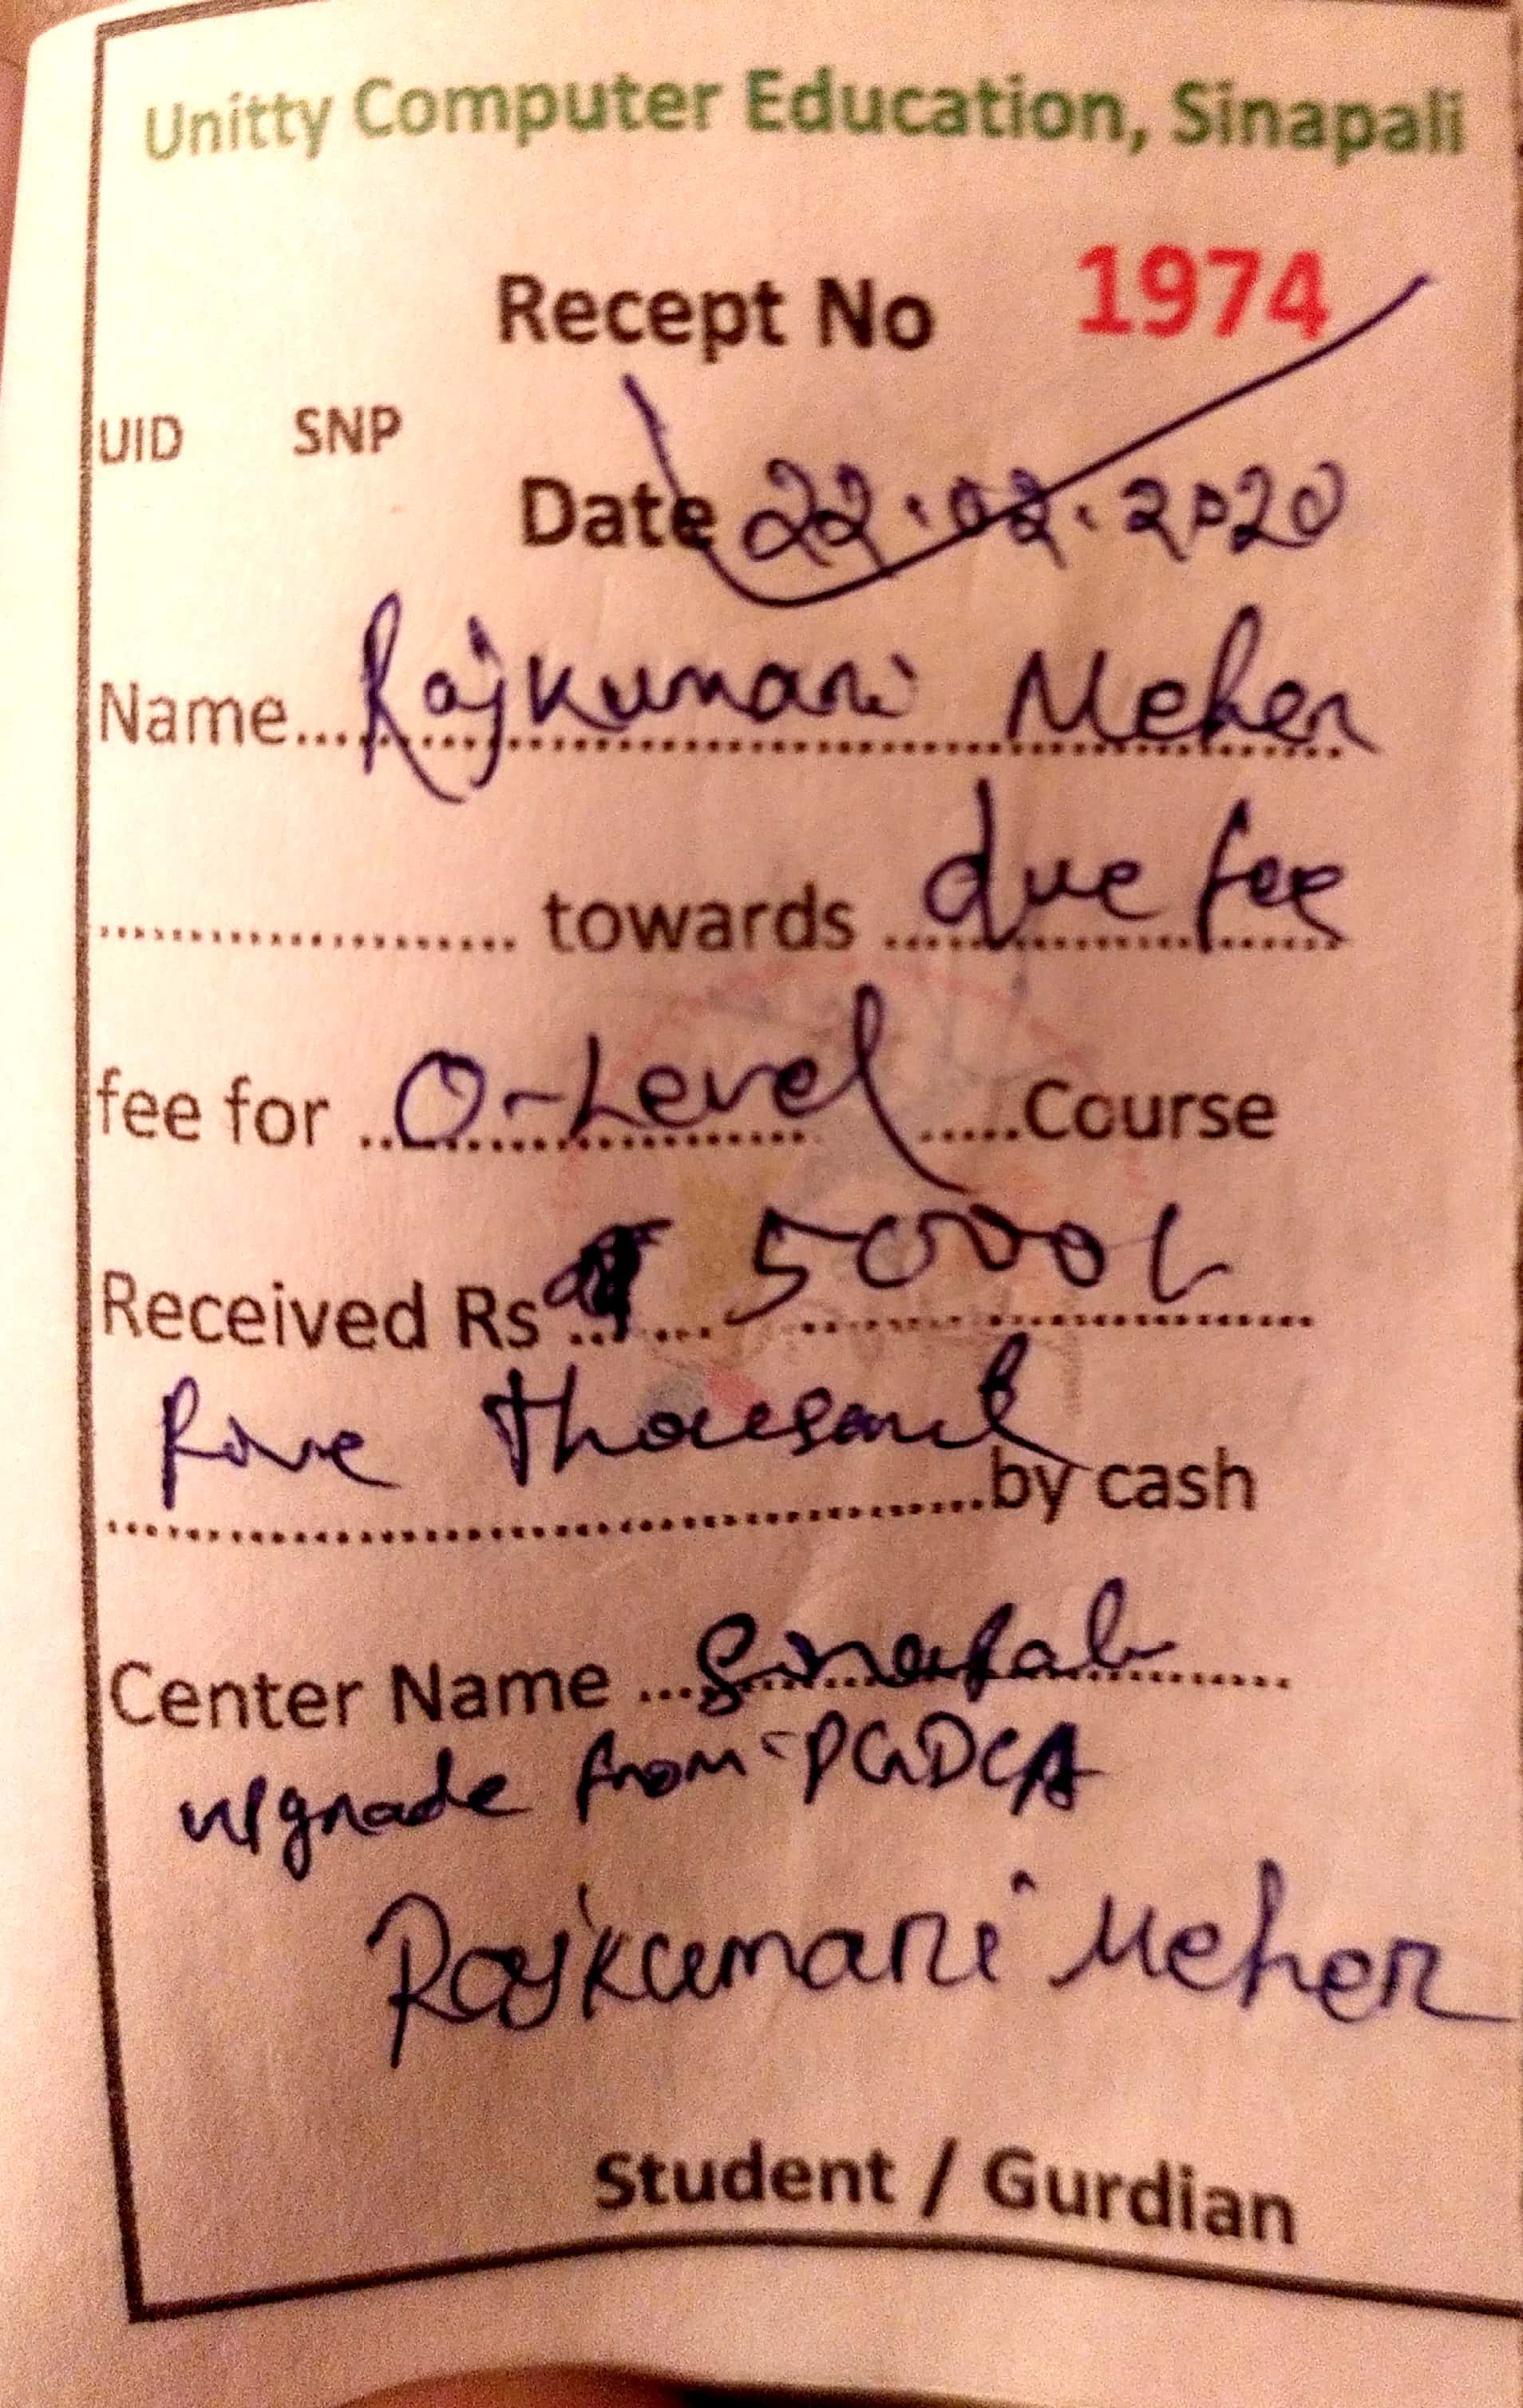 Unitty Computer Education, Sinapali
Recept No 1974
UID SNP
Date 22.02.2020
Name... Rajkumari Meher
.................... towards ... due fee
fee for ... O-Level .....Course
Received Rs ... 5000/-
Five thousand
....................by cash
Center Name ... Sinapali
upgrade from - PGDCA
Rajkumari Meher
Student / Gurdian